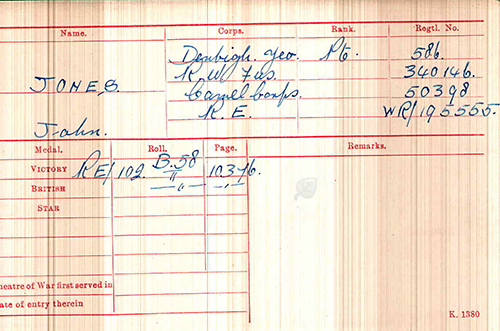 Name. Corps. Rank. Regtl. No.
Denbigh. Yeo. Pte. 586.
R. W. Fus. 340146.
JONES, Camel Corps. 50398
R. E. WR/195555.
John.
Medal. Roll. Page. Remarks.
VICTORY RE/102 B. 58 10376.
BRITISH —〃— —〃—
STAR
heatre of War first served in
ate of entry therein
K. 1380